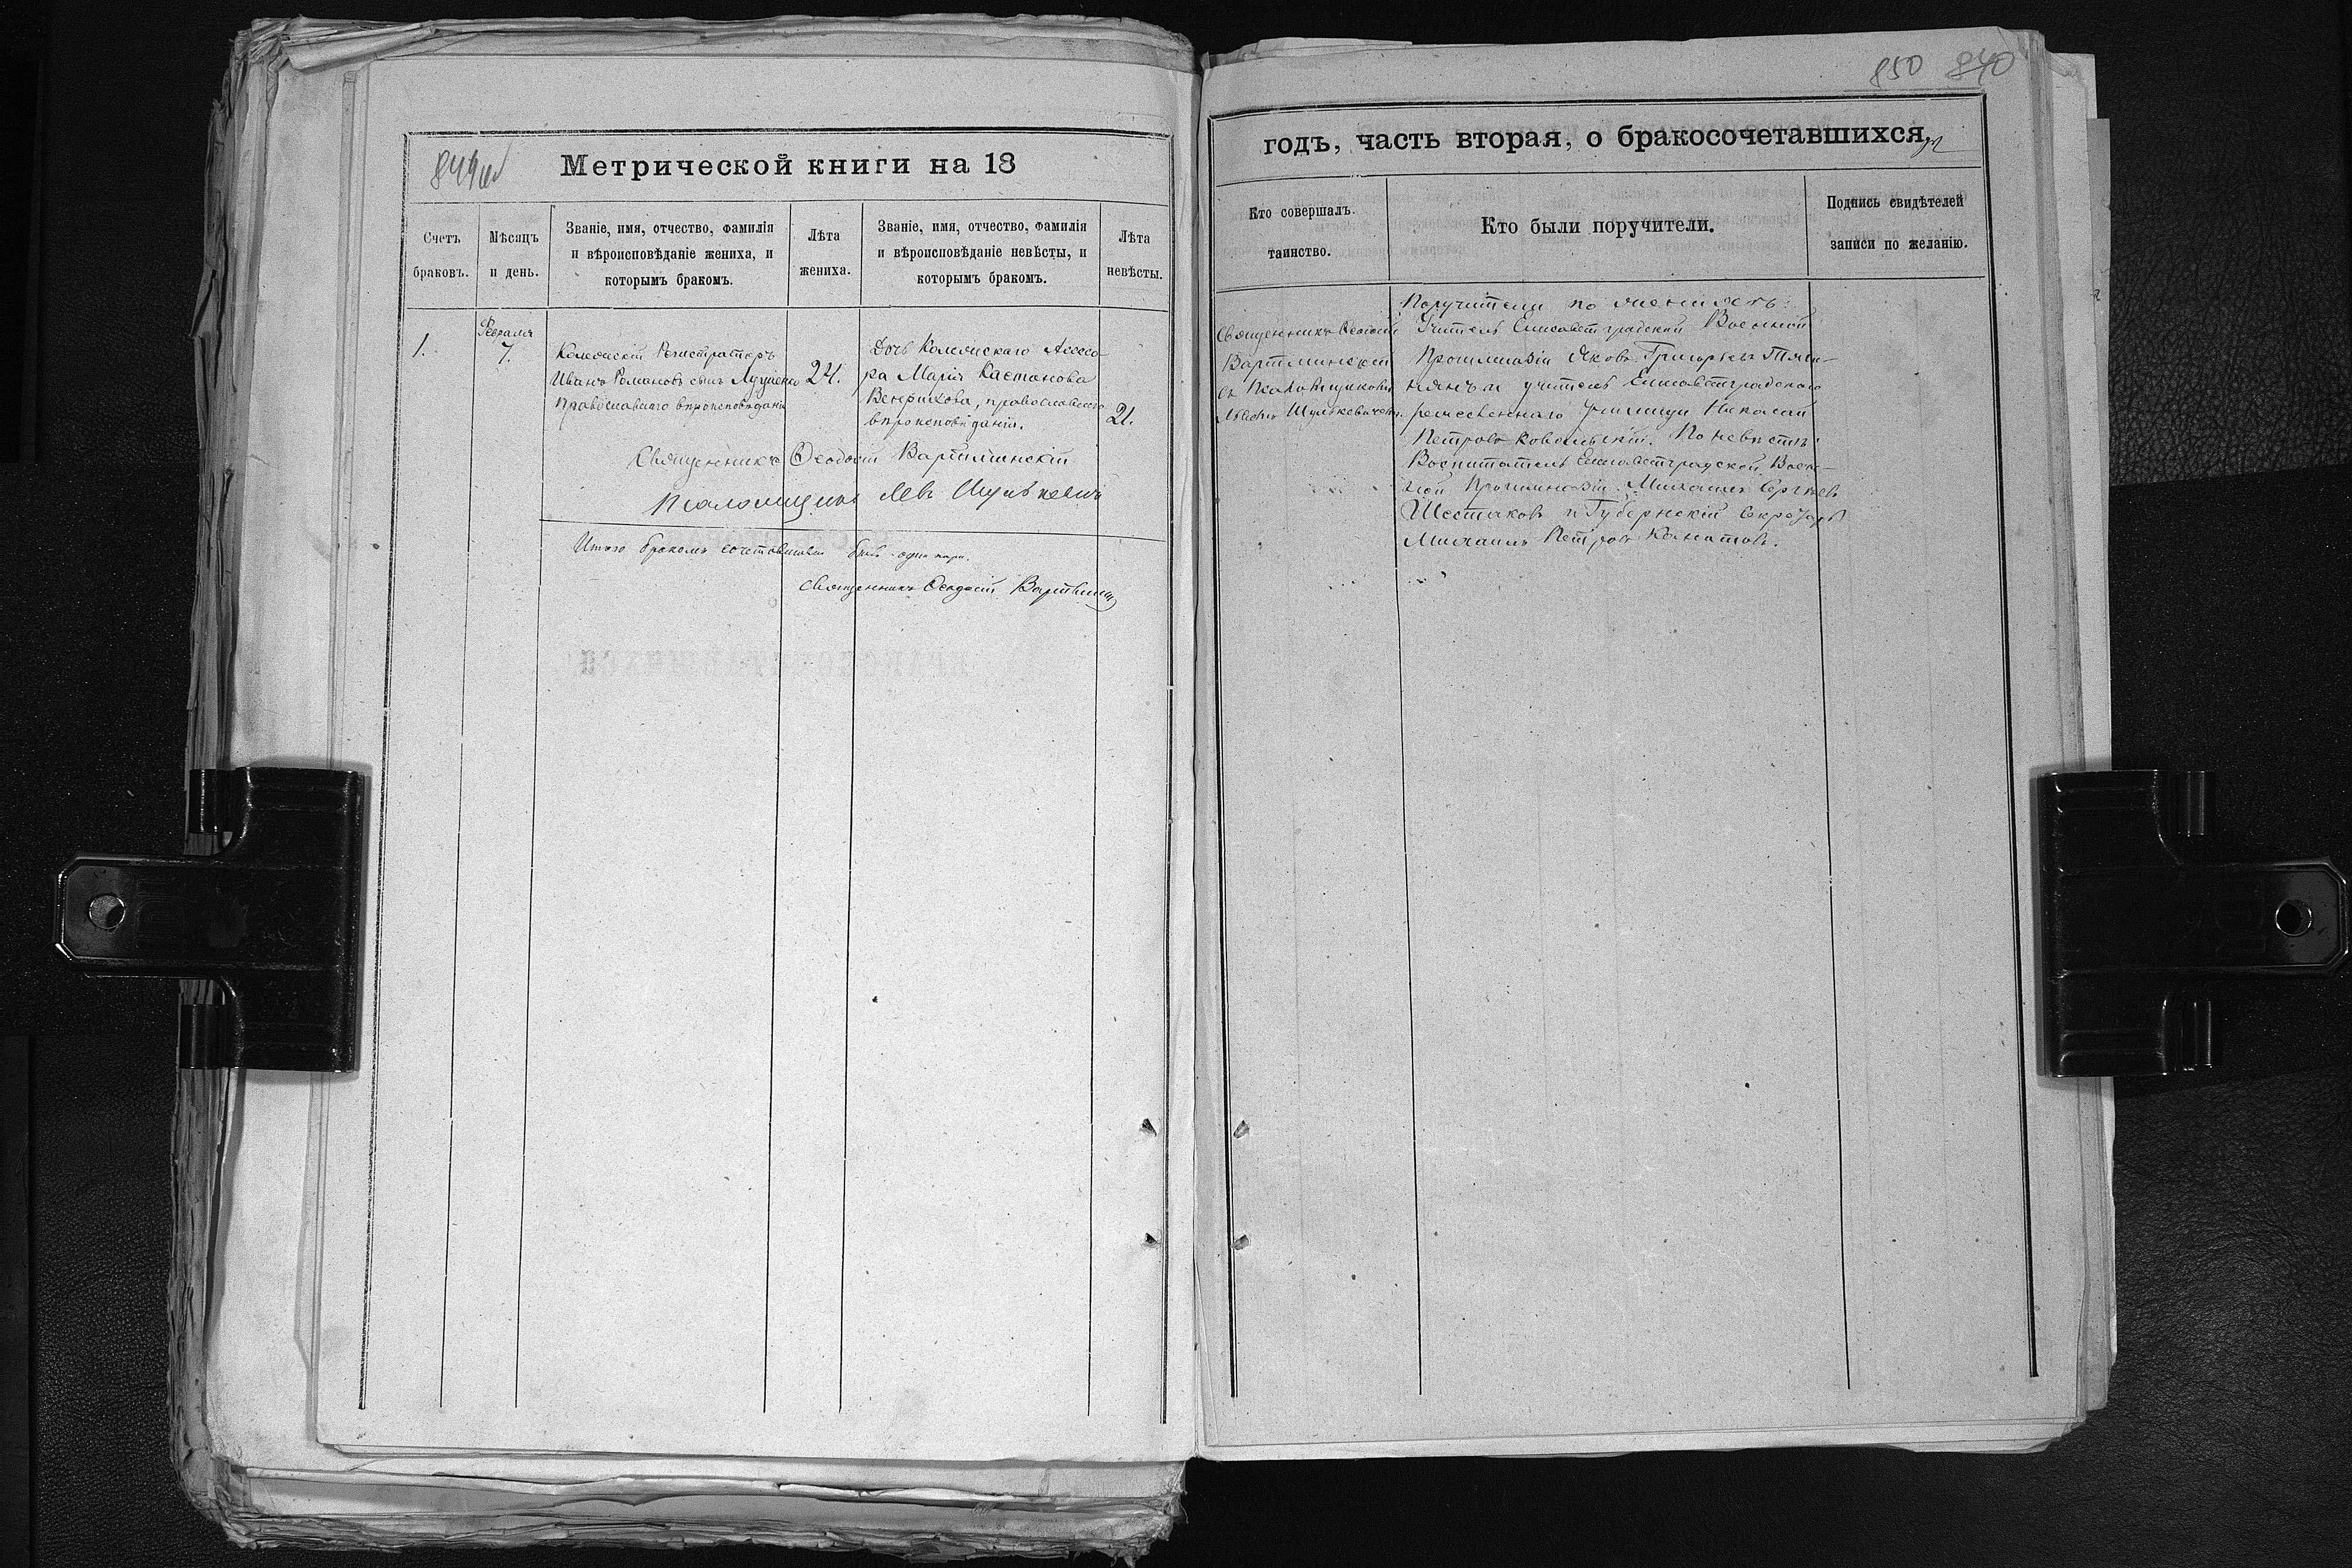 850 840
849
Метрической книги на 18
годъ, часть вторая, о бракосочетавшихся,
Счетъ браковъ.
Мѣсяцъ и день.
Званіе, имя, отчество, фамилія
и вѣроисповѣданіе жениха, и
которымъ бракомъ.
Лѣта жениха.
Званіе, имя, отчество, фамилія
и вѣроисповѣданіе невѣсты, и
которымъ бракомъ.
Лѣта невѣсты.
Кто совершалъ
таинство.
Кто были поручители.
Подпись свидѣтелей
записи по желанію.
1.
Февраля
7.
Коллежскій Регистраторъ
Иванъ Романовъ сынъ Луценко
православнаго вѣроисповѣданія
24.
Дочь Коллежскаго Ассесо-
ра Марія Кастанова
православнаго
вѣроисповѣданія.
21.
Священникъ Ѳеодосій Вартминскій
Псаломщикъ Левъ Шулькевичъ
Итого бракомъ сочетавшихся была одна пара.
Священникъ Ѳеодосій
Священникъ Ѳеодосій
Вартминскій
съ Псаломщикомъ
Львомъ Шулькевичемъ.
Поручители по женихѣ:
Учитель Елисаветградской Военной
Прогимназіи Яковъ Григорьевъ
и учитель Елисаветградскаго
ремесленнаго училища Николай
Петровъ Ковальскій. По невѣстѣ:
Воспитатель Елисаветградской Воен-
ной Прогимназіи Михаилъ Сергѣевъ
Шестаковъ и Губернскій Секретарь
Михаилъ Петровъ